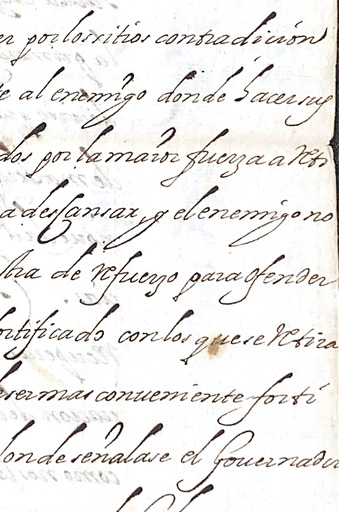 er por los sitios contradicion
te al enemigo donde hacer sus
dos por la maior fuerza a reti
a descansar, y el enemigo no
stra de refuerzo para ofender
ortificado con los que se retira
ser mas conveniente forti
donde señalase el Governador